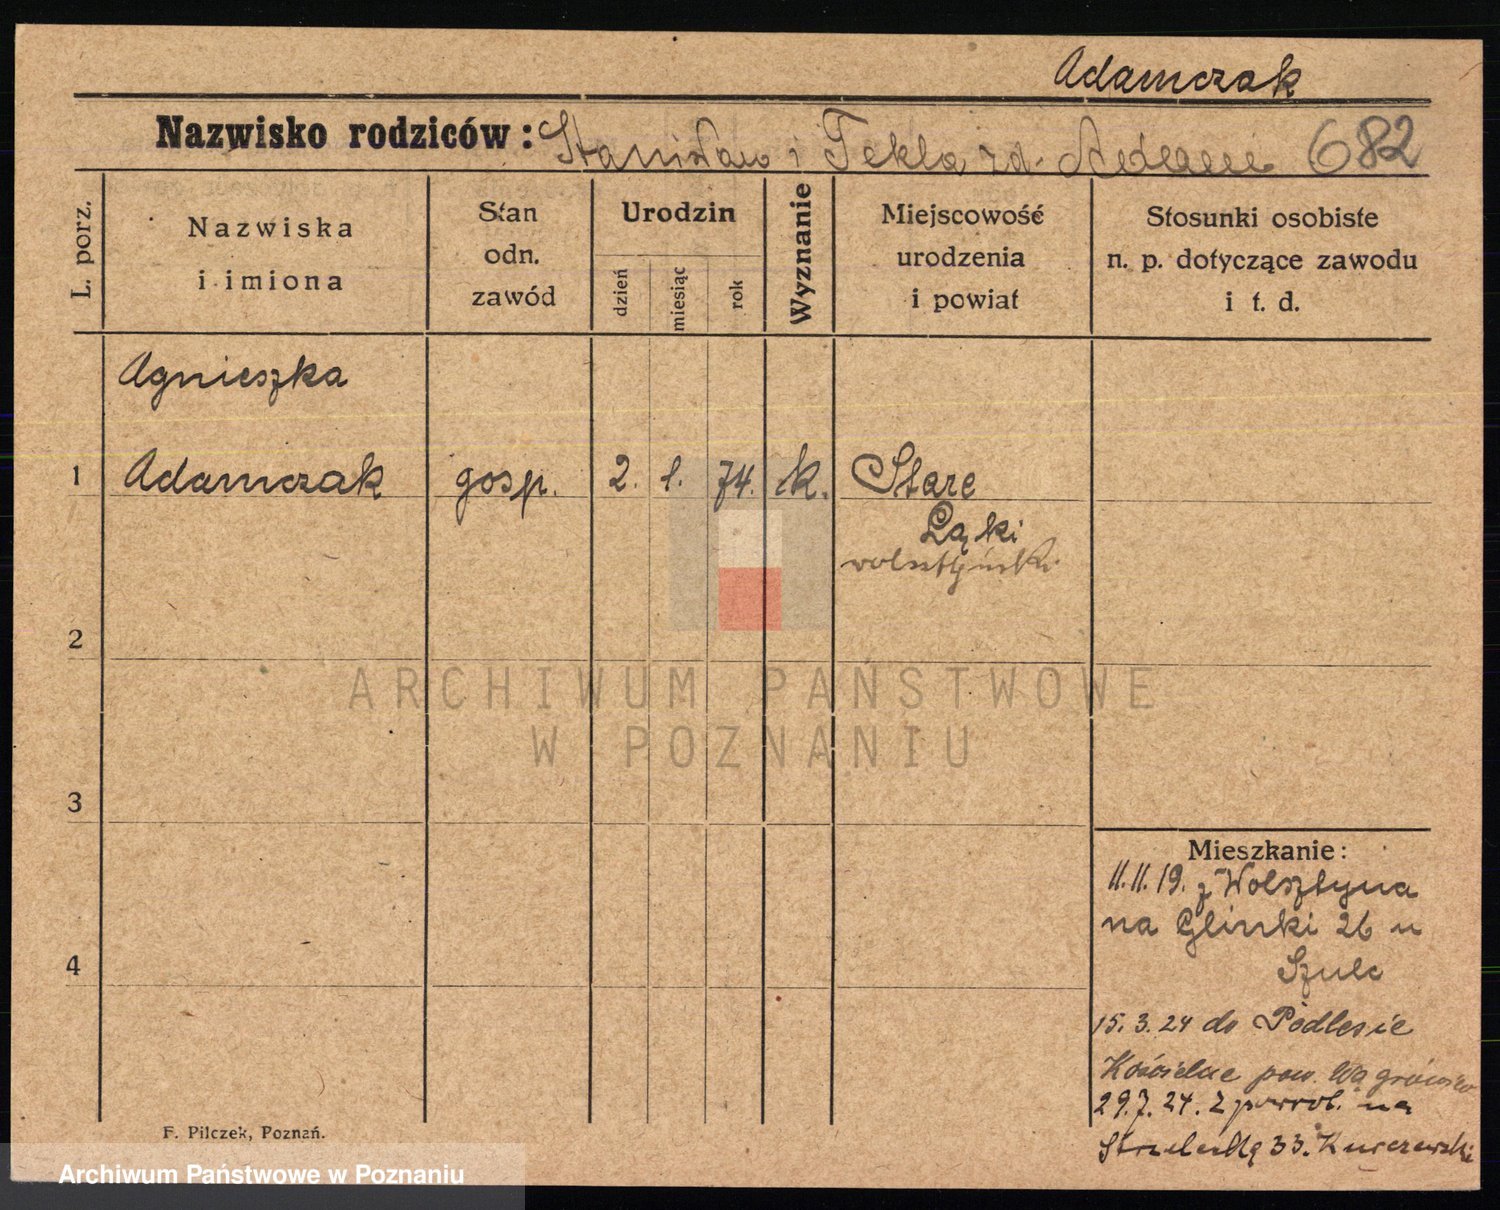 Adamczak
Nazwisko rodziców: Stanisław i Tekla zd. 682
L. porz.
Nazwiska
i imiona
Stan
odn.
zawód
Urodzin
dzień
miesiąc
rok
Wyznanie
Miejscowość
urodzenia
i powiat
Stosunki osobiste
n. p. dotyczące zawodu
i t. d.
Agnieszka
1 Adamczak gosp. 2. 1. 74. k. Stare
Łąki
wolsztyński
2
ARCHIWUM PAŃSTWOWE
W POZNANIU
3
Mieszkanie:
11.11.19. z Wolsztyna
na Glinki 26 u
4
Szulc
15.3.24 do Podlesie
Kościelne pow. Wągrówiec
29.7.24. z powrot. na
Strzelecką 33. Kurczewski
F. Pilczek, Poznań.
Archiwum Państwowe w Poznaniu